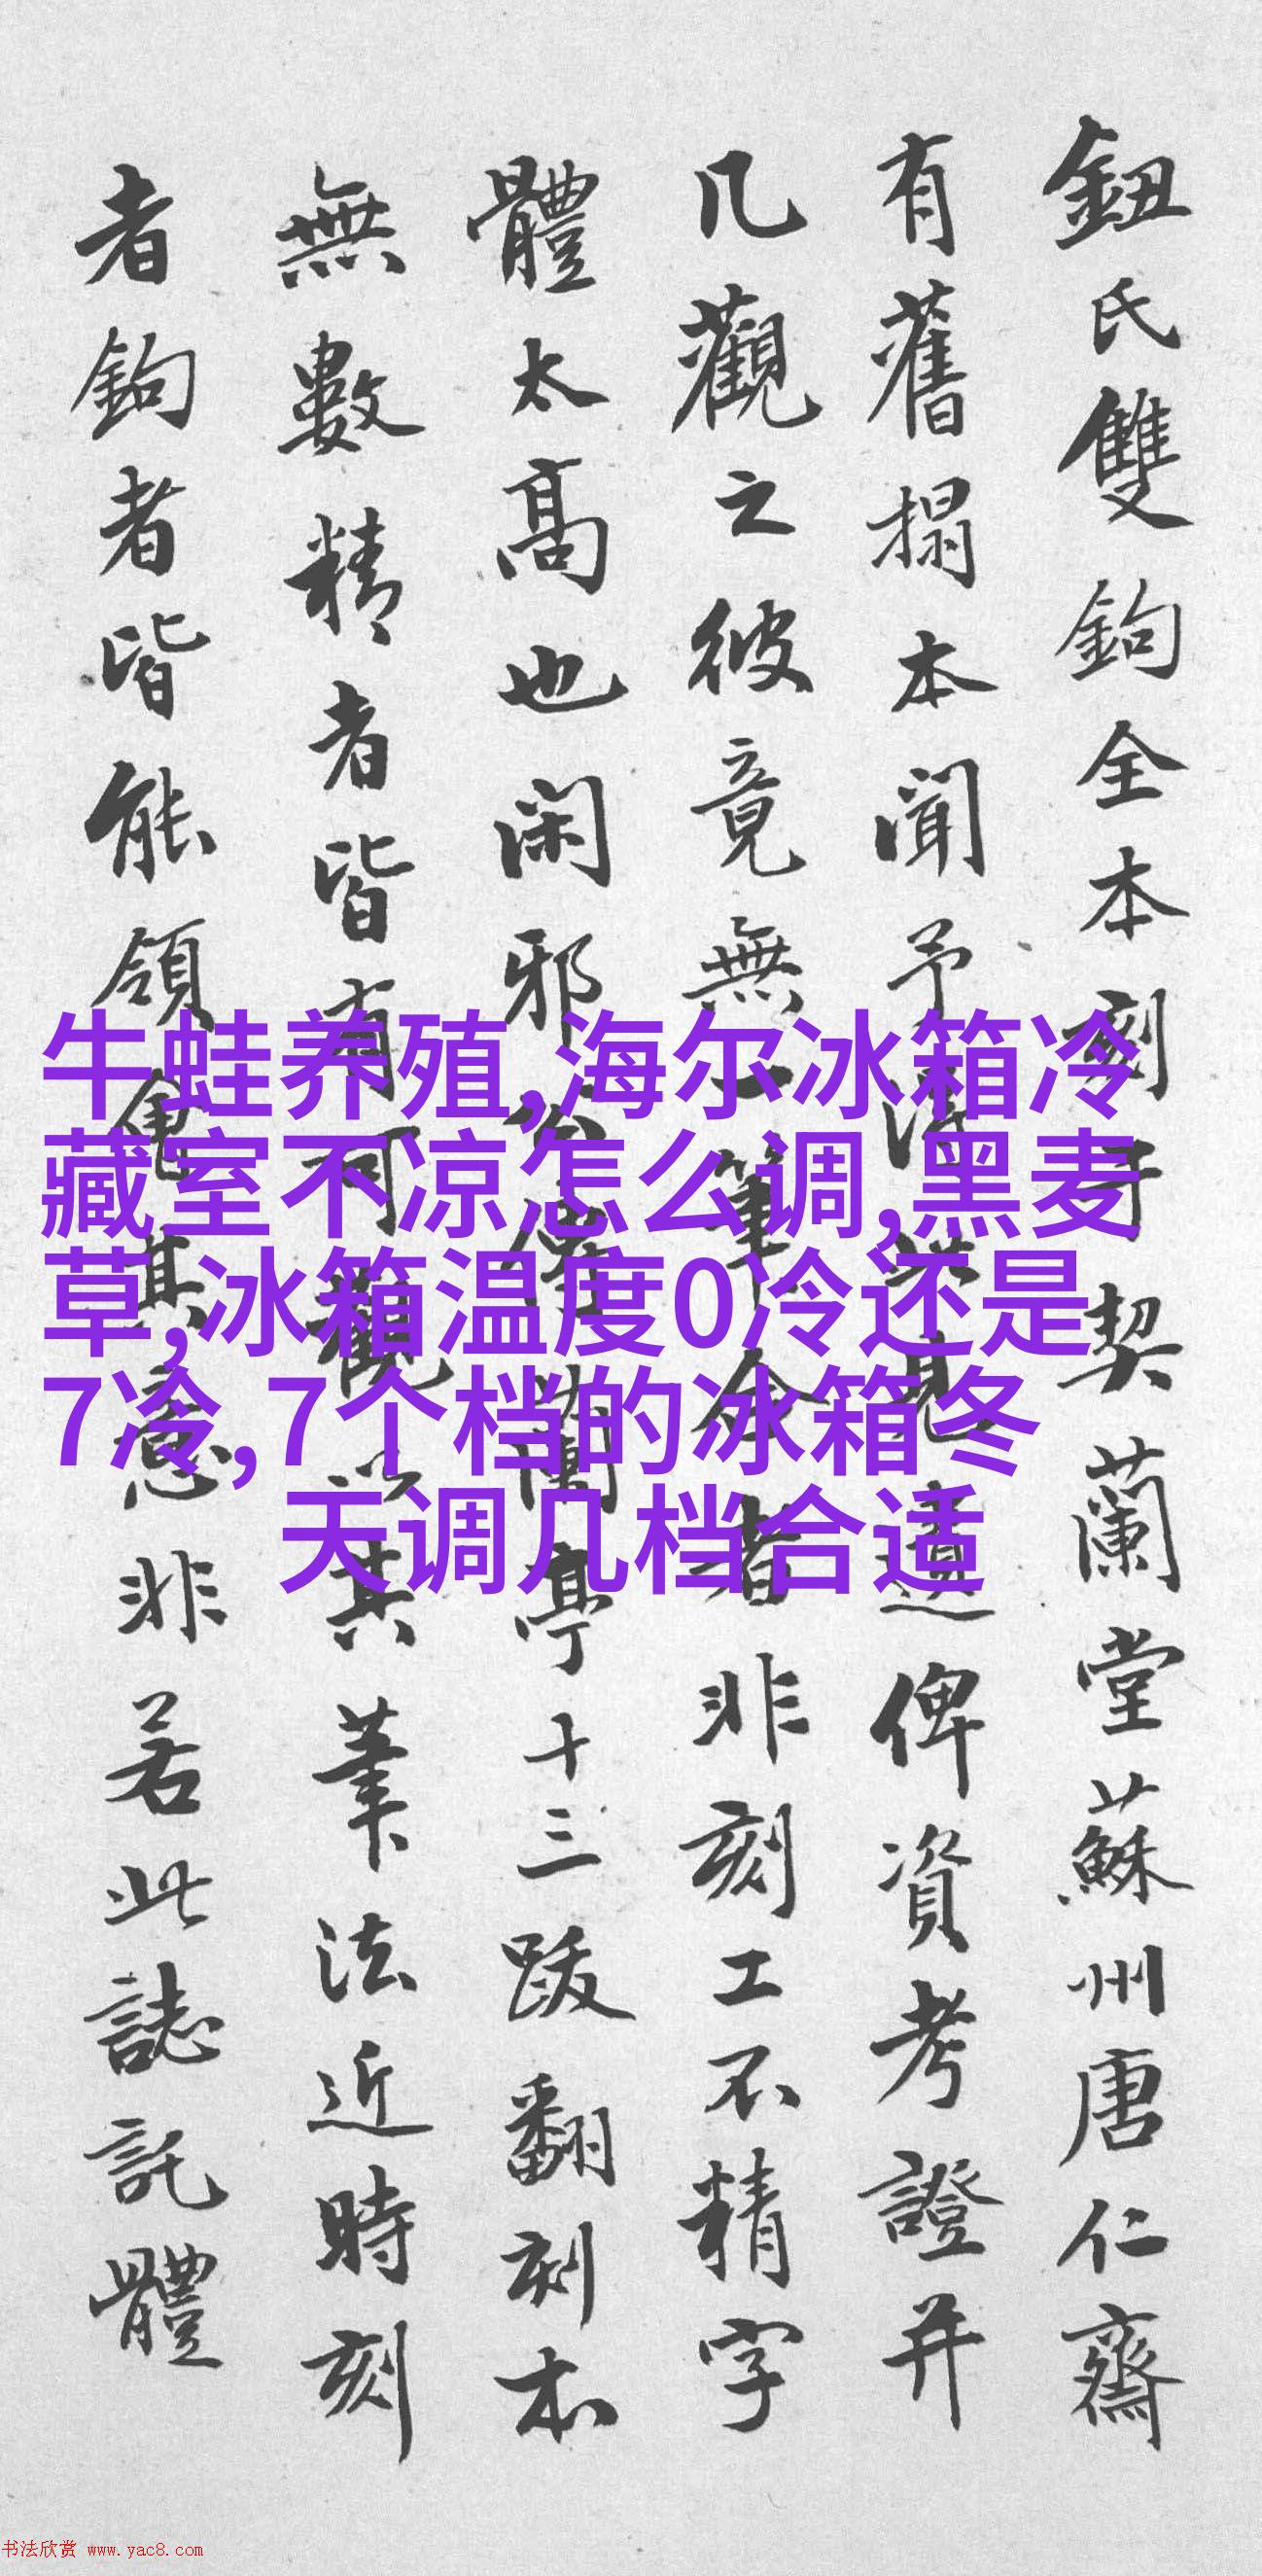 鈕氏雙鉤全本刻于契蘭堂蘇州唐仁齋
有舊搨本聞予
俾資考證并
几觀之彼竟無一筆
者非刻工不精字
體太高也闲邪公
蘭亭十三跋翻刻本
無數精者皆有可觀
其筆法近時刻
者鉤者皆能領
其意非若此誌託體
牛蛙养殖,海尔冰箱冷
藏室不凉怎么调,黑麦
草,冰箱温度0冷还是
7冷,7个档的冰箱冬
天调几档合适
书法欣赏 www.yac8.com